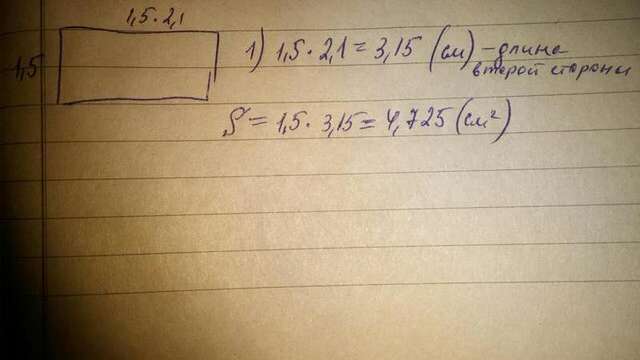 1,5·2,1
1,5
1) 1,5·2,1=3,15 (см) - длина
второй стороны
S=1,5·3,15=4,725(см²)